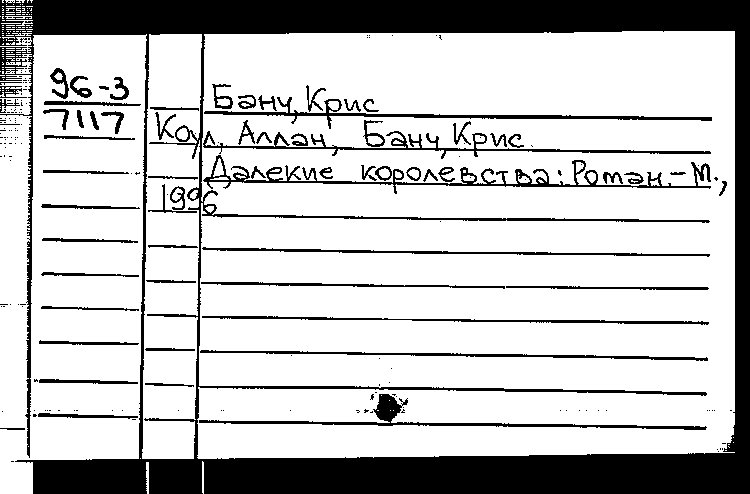 96-3
7117
Банч, Крис
Коул, Аллан, Банч, Крис
Далекие королевства: Роман. - М.,
1996